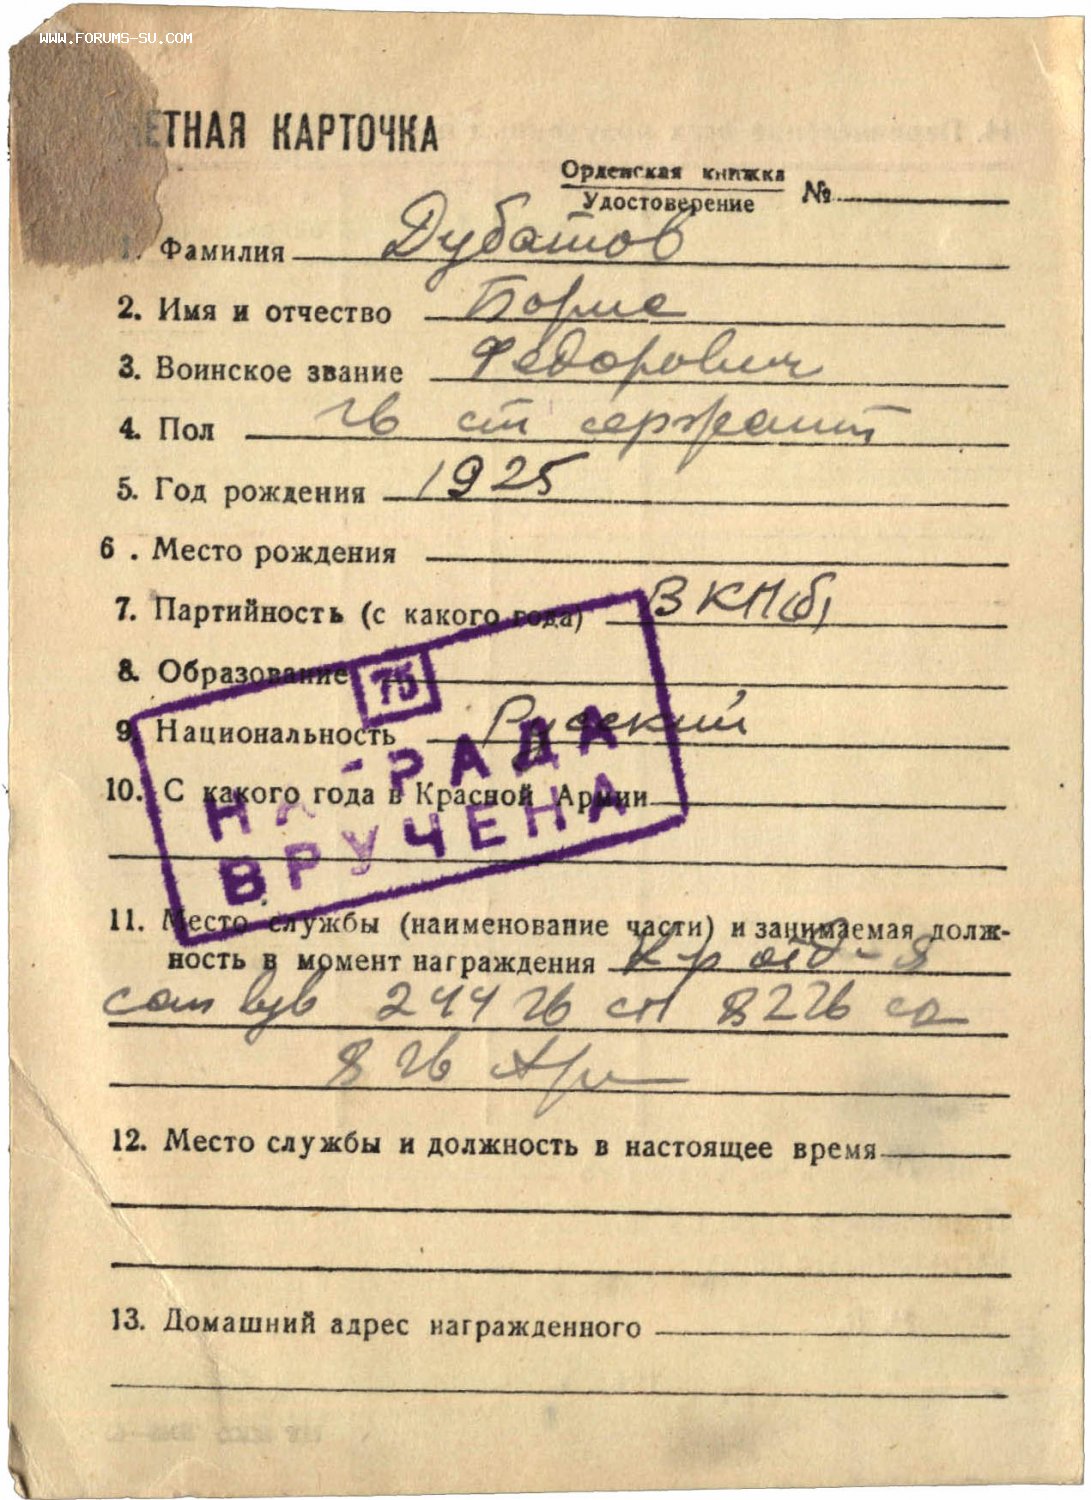 WWW.FORUMS-SU.COM
ЕТНАЯ КАРТОЧКА
Орденская книжка
Удостоверение №
1. Фамилия Дубатов
2. Имя и отчество Борис
3. Воинское звание Федорович
4. Пол гв ст сержант
5. Год рождения 1925
6. Место рождения
7. Партийность (с какого года) ВКП(б)
8. Образование
75
9. Национальность Русский
НАГРАДА
10. С какого года в Красной Армии
ВРУЧЕНА
11. Место службы (наименование части) и занимаемая долж-
ность в момент награждения к-р отд-я
244 гв сп 82 гв сд
8 гв Арм
12. Место службы и должность в настоящее время
13. Домашний адрес награжденного